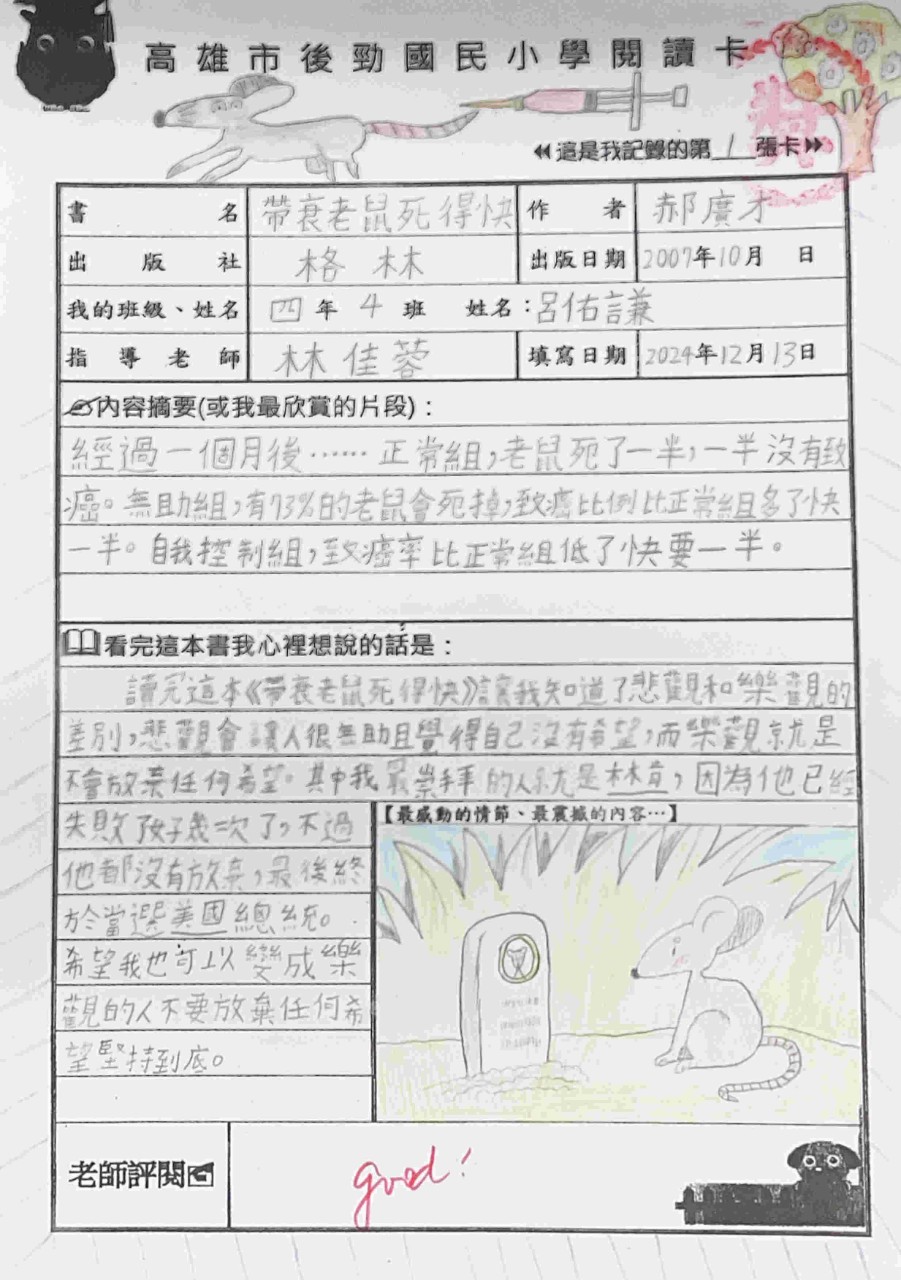 高雄市後勁國民小學閱讀卡
這是我記錄的第1張卡
書名 帶衰老鼠死得快 作者 郝廣才
出版社 格林 出版日期 2007年10月 日
我的班級、姓名 四年4班 姓名:呂佑謙
指導老師 林佳蓉 填寫日期 2024年12月13日
內容摘要(或我最欣賞的片段):
經過一個月後……正常組,老鼠死了一半,一半沒有致
癌。無助組,有73%的老鼠會死掉,致癌比例比正常組多了快
一半。自我控制組,致癌率比正常組低了快要一半。
看完這本書我心裡想說的話是:
讀完這本《帶衰老鼠死得快》讓我知道了悲觀和樂觀的
差別,悲觀會讓人很無助且覺得自己沒有希望,而樂觀就是
不會放棄任何希望。其中我最崇拜的人就是林肯,因為他已經
失敗好幾次了,不過
他都沒有放棄,最後終
於當選美國總統。
希望我也可以變成樂
觀的人不要放棄任何希
望堅持到底。
【最感動的情節、最震撼的內容…】
老師評閱
good!